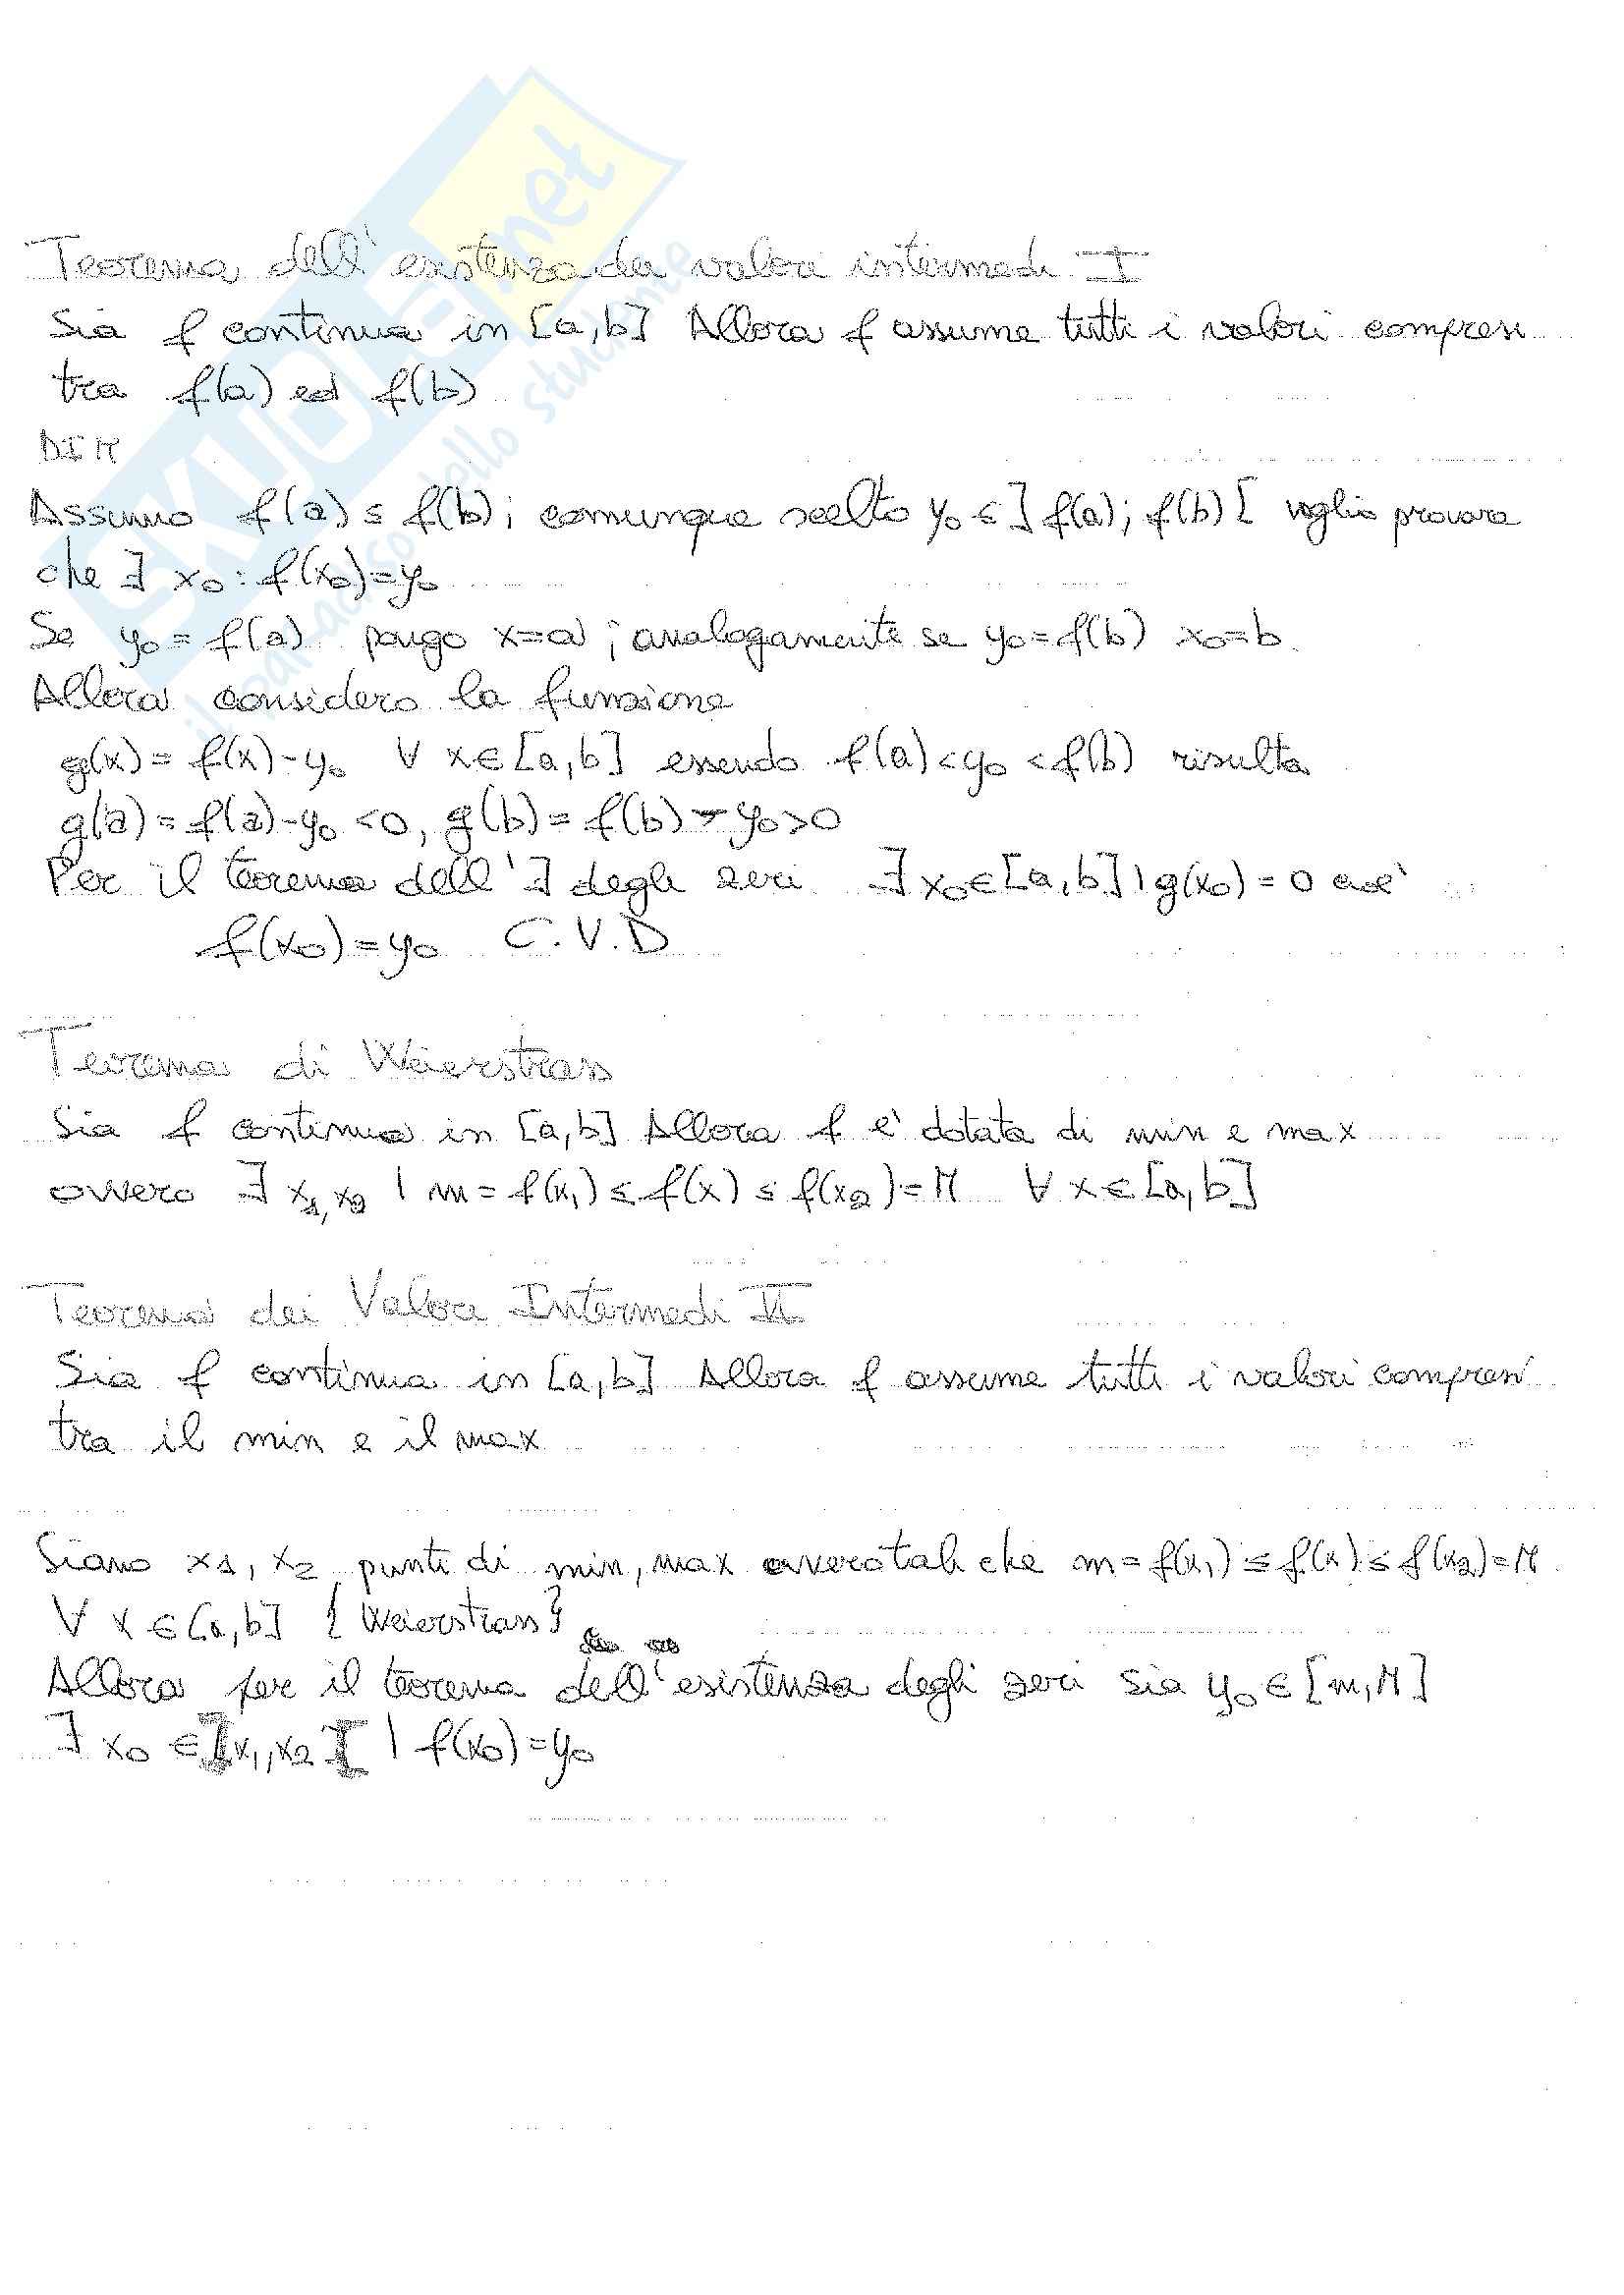 Teorema dell'esistenza dei valori intermedi I
Sia f continua in [a,b] Allora f assume tutti i valori compresi
tra f(a) ed f(b)
DIM
Assumo f(a) ≤ f(b); comunque scelto y₀ ∈ ]f(a); f(b)[ voglio provare
che ∃ x₀ : f(x₀)=y₀
Se y₀ = f(a) pongo x=a; analogamente se y₀=f(b) x₀=b.
Allora considero la funzione
g(x) = f(x)-y₀ ∀ x∈[a,b] essendo f(a)<y₀<f(b) risulta
g(a) = f(a)-y₀ <0, g(b) = f(b)-y₀>0
Per il teorema dell'∃ degli zeri ∃ x₀∈[a,b] | g(x₀) = 0 cioè
f(x₀)=y₀ C.V.D
Teorema di Weierstrass
Sia f continua in [a,b] Allora f è dotata di min e max
ovvero ∃ x₁,x₂ | m = f(x₁) ≤ f(x) ≤ f(x₂)=M ∀ x∈[a,b]
Teorema dei Valori Intermedi II
Sia f continua in [a,b] Allora f assume tutti i valori compresi
tra il min e il max
Siano x₁, x₂ punti di min, max ovvero tali che m = f(x₁) ≤ f(x) ≤ f(x₂)=M
∀ x ∈[a,b] {Weierstrass}
Allora per il teorema dell'esistenza degli zeri sia y₀ ∈ [m,M]
∃ x₀ ∈ ]x₁,x₂[ | f(x₀)=y₀